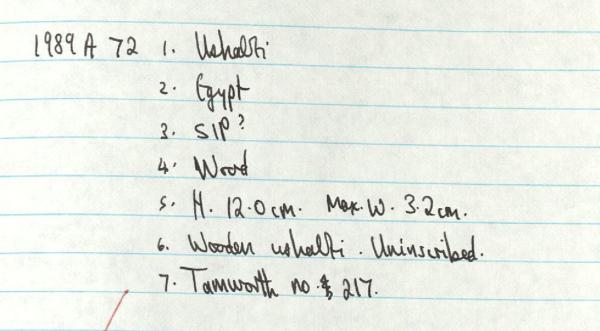 1989 A 72 1. Ushabti
2. Egypt
3. SIP?
4. Wood
5. H. 12.0 cm. Max. W. 3.2 cm.
6. Wooden ushabti. Uninscribed.
7. Tamworth no. 217.